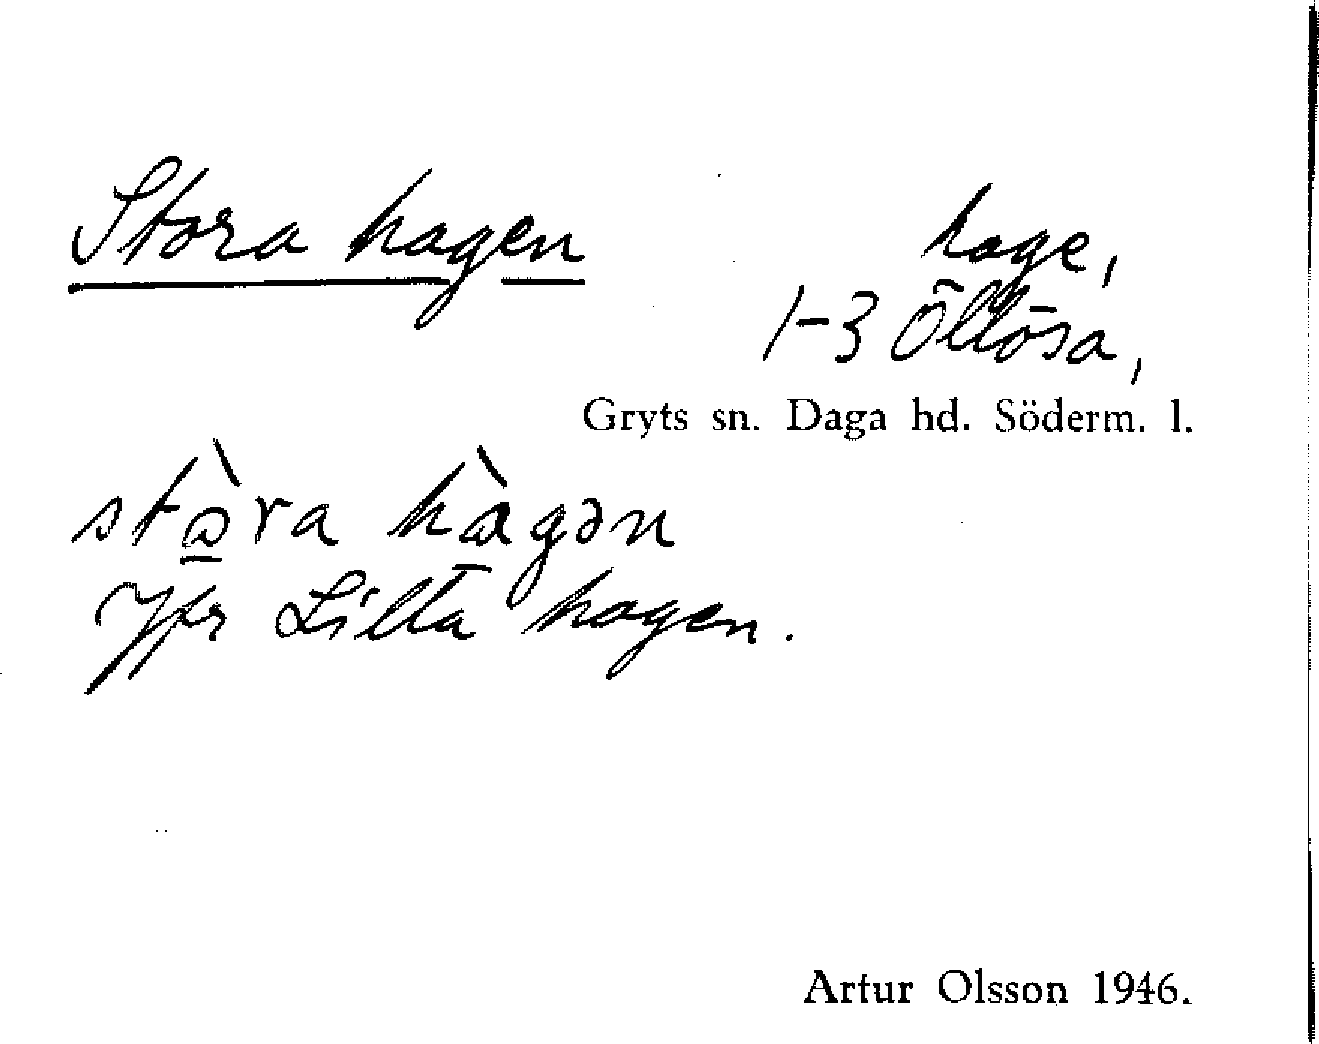 Stora hagen
hage,
1-3 Öllösa,
Gryts sn. Daga hd. Söderm. l.
stò̱ra hὰ̱gən
Jfr Lilla hagen.
Artur Olsson 1946.